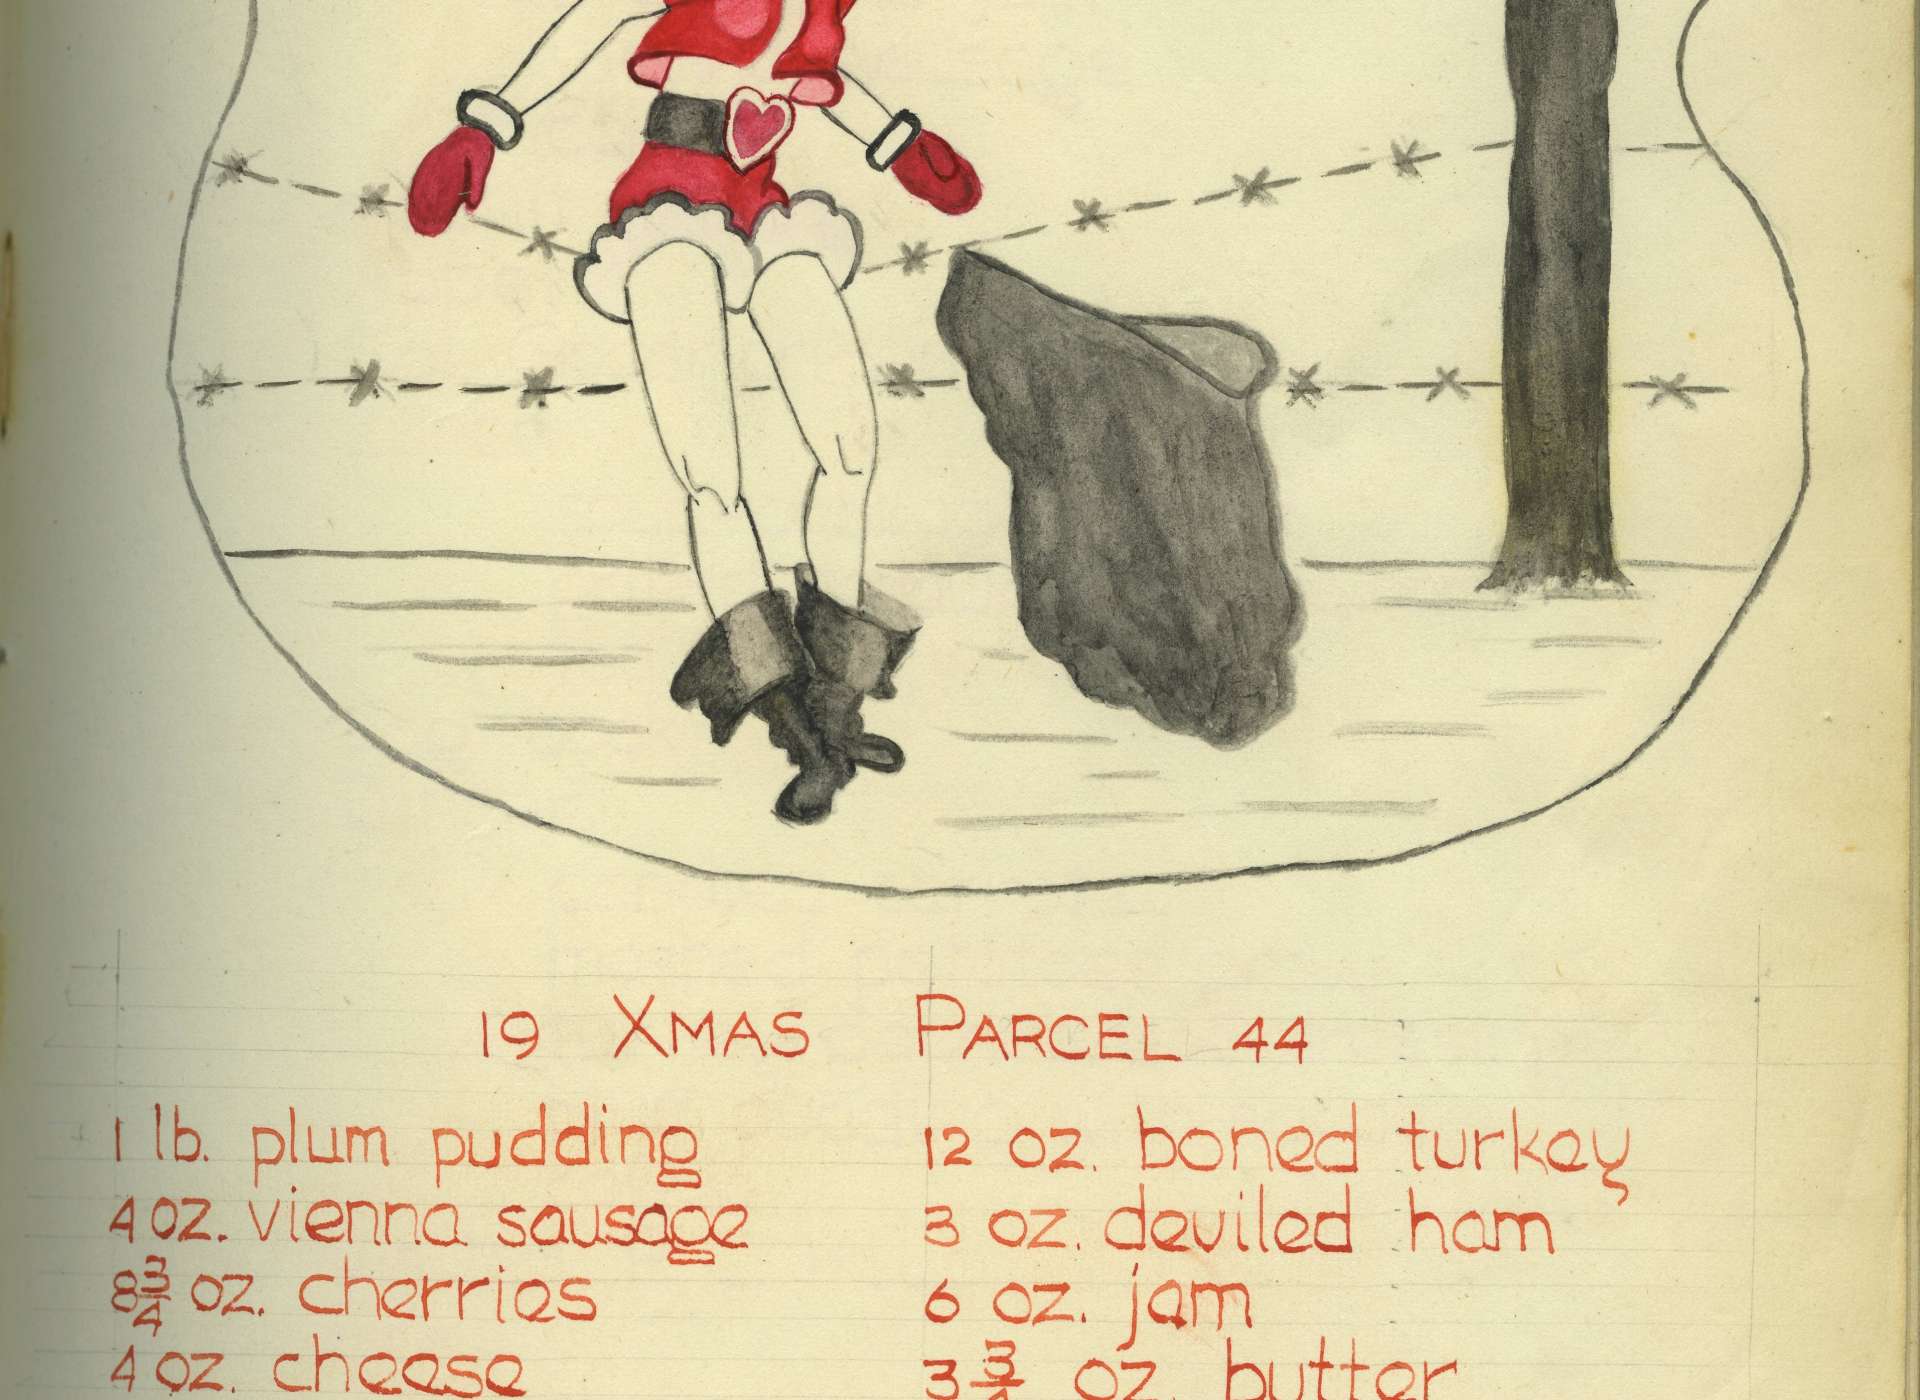 19 XMAS PARCEL 44
1 lb. plum pudding
4 oz. vienna sausage
8¾ oz. cherries
4 oz. cheese
12 oz. boned turkey
3 oz. deviled ham
6 oz. jam
3¾ oz. butter